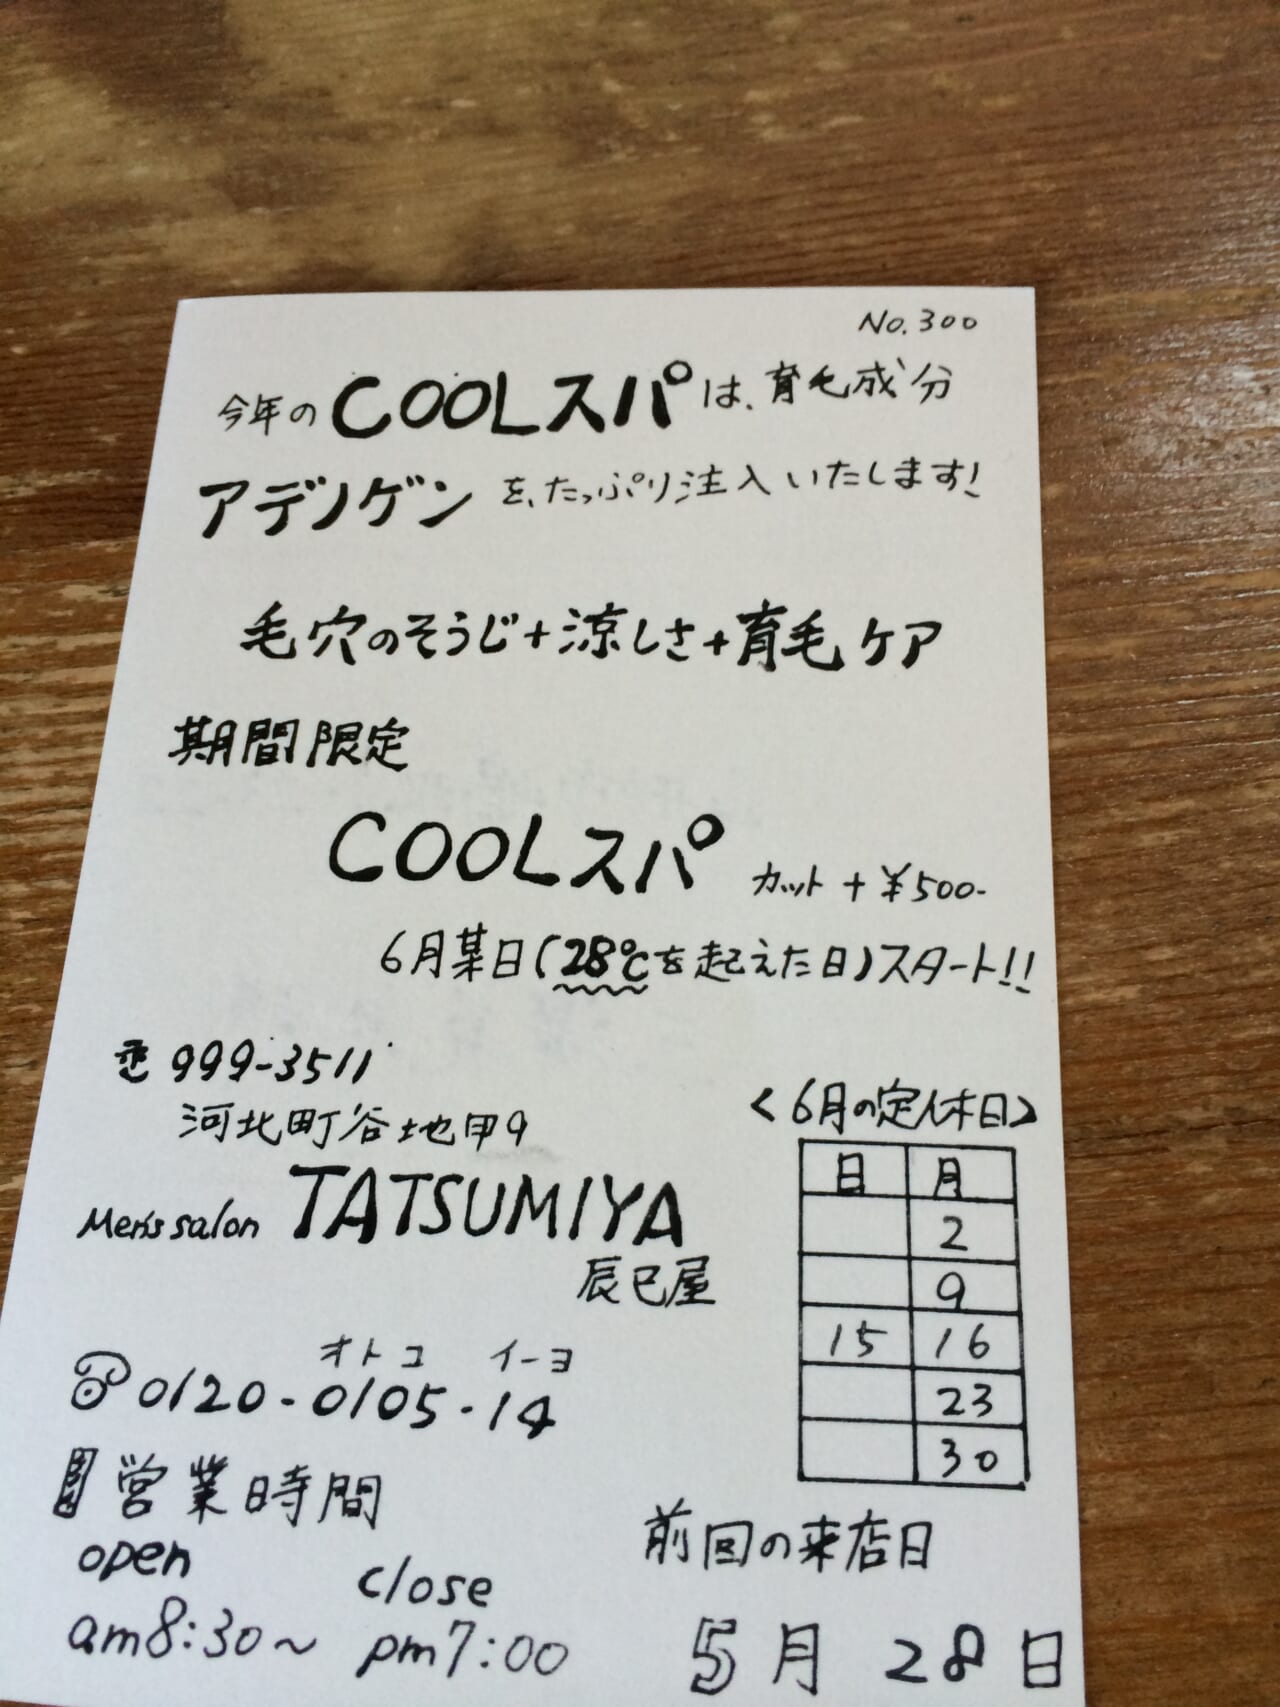 No.300
今年のCOOLスパは、育毛成分
アデノゲンを、たっぷり注入いたします!
毛穴のそうじ+涼しさ+育毛ケア
期間限定
COOLスパ カット+¥500-
6月某日(28℃を起えた日)スタート!!
〒999-3511
河北町谷地甲9
Men's salon TATSUMIYA
辰巳屋
オトコ イーヨ
0120-0105-14
営業時間
open close
am8:30~ pm7:00
<6月の定休日>
日 月
2
9
15 16
23
30
前回の来店日
5月28日